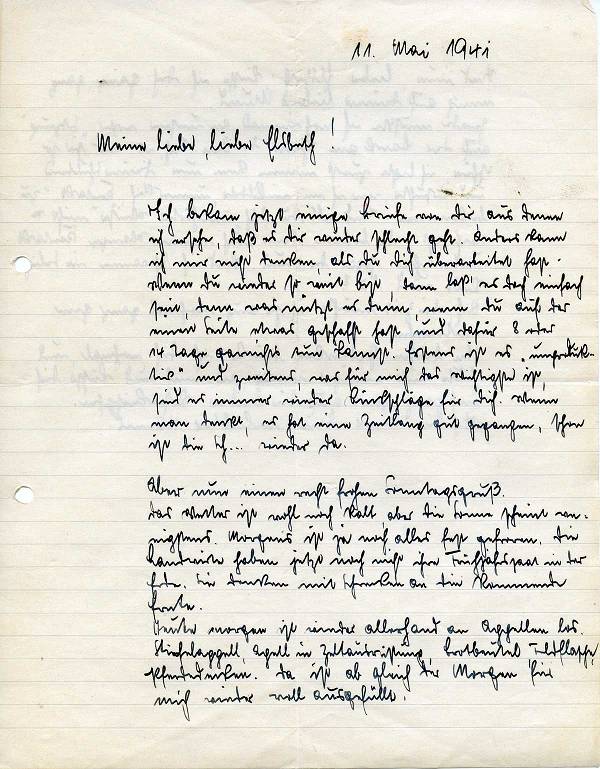 11. Mai 1941
Meine liebe, liebe Elsbeth!
Ich bekam jetzt einige Briefe von Dir aus denen
ich ersehe, daß es dir wieder schlecht geht. Anders kann
ich mir nicht denken, als du Dich überarbeitet hast.
Wenn Du wieder so weit bist, dann laß' es doch einfach
sein, denn was nützt es denn, wenn du auf der
einen Seite etwas geschafft hast und dafür 8 oder
14 Tage garnichts tun kannst. Erstens ist es „unproduk-
tiv" und zweitens, was für mich das wichtigste ist,
sind es immer wieder Rückschläge für Dich. Wenn
man denkt, es hat eine Zeitlang gut gegangen, schon
ist die Sch... wieder da.
Aber nun einen recht frohen Sonntagsgruß.
Das Wetter ist wohl noch kalt, aber die Sonne scheint we-
nigstens. Morgens ist ja noch alles fest gefroren. Die
Landwirte haben jetzt noch nicht ihre Frühjahrssaat in der
Erde. Sie denken mit Schrecken an die kommende
Ernte.
Heute morgen ist wieder allerhand an Appellen los.
Stiefelappell, Apell in Zeltausrüstung, Brotbeutel, Feldflasche,
Pferdedecken. Da ist ab gleich der Morgen für
mich wieder voll ausgefüllt.